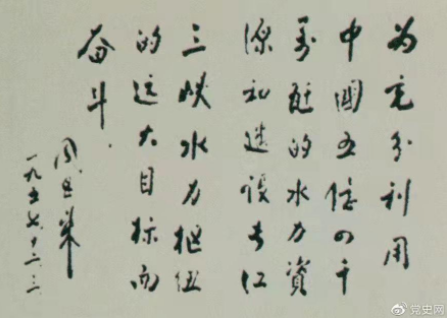 为充分利用
中國五亿四千
万瓩的水力資
源和建设长江
三峡水力枢纽
的远大目标而
奋斗.
周恩来
一九五七.十二.三
@党史网